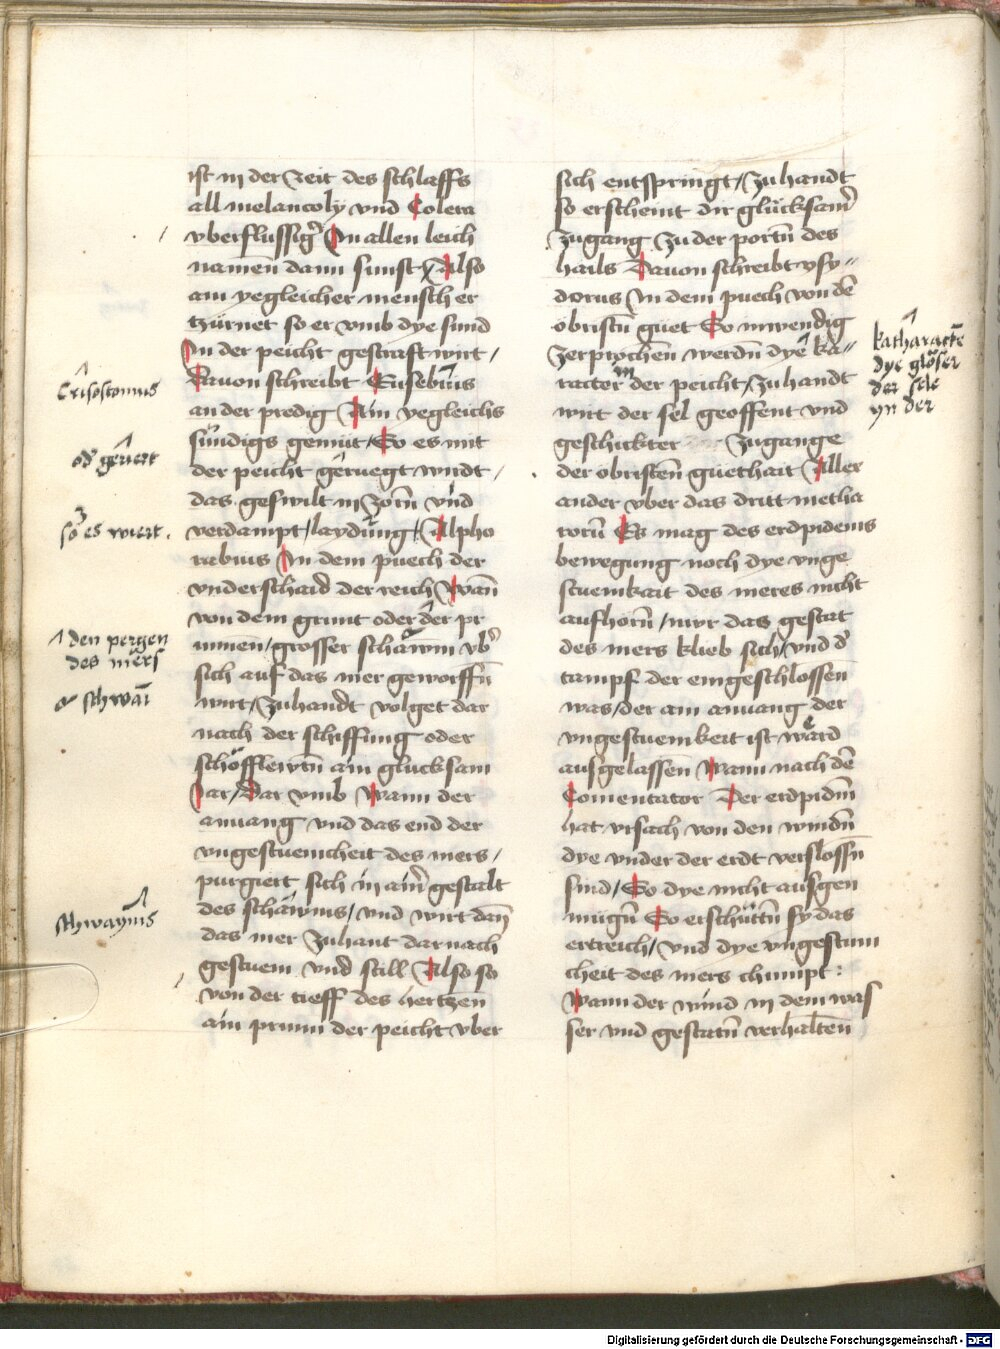 ist in der Zeit des schlaffs
all melancoly vnd Colera
vberflussigr̄ In allen leich
namen̄ dann sunst / Also
am yegleicher mensch er
tzürnet so er vmb dye sund
In der peicht gestraft wirt /
Dauon schreibt Eusebius
an der predig Ain yegleichs
sündigs gemüt / So es mit
der peicht geruegt wirdt /
das geswilt in zorn̄ vnd
verdampt / laydung / Alpho
rabius In dem puech der
vnderschaid der reich Wan̄
von dem grunt oder der pr
unnen̄ / grosser schawm vb̄
sich auf das mer geworffn̄
wirt / Zuhandt volget dar
nach der schiffung oder
schöfflewtn̄ ain glucksam
Jar / Dar vmb Wann der
anuang vnd das end der
vngestuemcheit des mers /
purgiert sich in ainr̄ gestalt
des schawms / vnd wirt dan̄
das mer Zuhant darnach
gestuem vnd still Also so
von der tieff des hertzen
ain prunn der peicht vber
Crisostomus
od̄ geruert
so es wiert .
den pergen
des mers
schwam̄
schwayms
sich entspringt / Zuhandt
so erscheint dir glücksamr̄
Zugang Zu der portn̄ des
hails Dauon schreibt ysy=
dorus In dem puech von dē
obristn̄ guet So inwendig
Zerprochen̄ werdn̄ dye ka=
racter in der peicht / Zuhandt
wirt der sel geoffent vnd
geschickter Zugange
der obristen̄ guethait Aller
ander vber das dritt metha
rorū Es mag des erdpidems
bewegung noch dye vnge
stuemkait des meres nicht
aufhorn̄ / nur das gestat
des mers klieb sich / vnd d̄
tampf der eingeschlossen̄
was / der am anuang der
vngestuemkeit ist ward
ausgelassen Wann nach dē
Comentator Der erdpidm̄
hat vrsach von den windn̄
dye vnder der erdt verslossn̄
sind / So dye nicht ausgen
mügn̄ So erschüttn̄ sy das
ertreich / vnd dye vngestum
cheit des mers chumpt :
Wann der wind in dem was
ser vnd gestatn̄ verhalten̄
katharactē
dye gloser
der sele
yn der
Digitalisierung gefördert durch die Deutsche Forschungsgemeinschaft - DFG